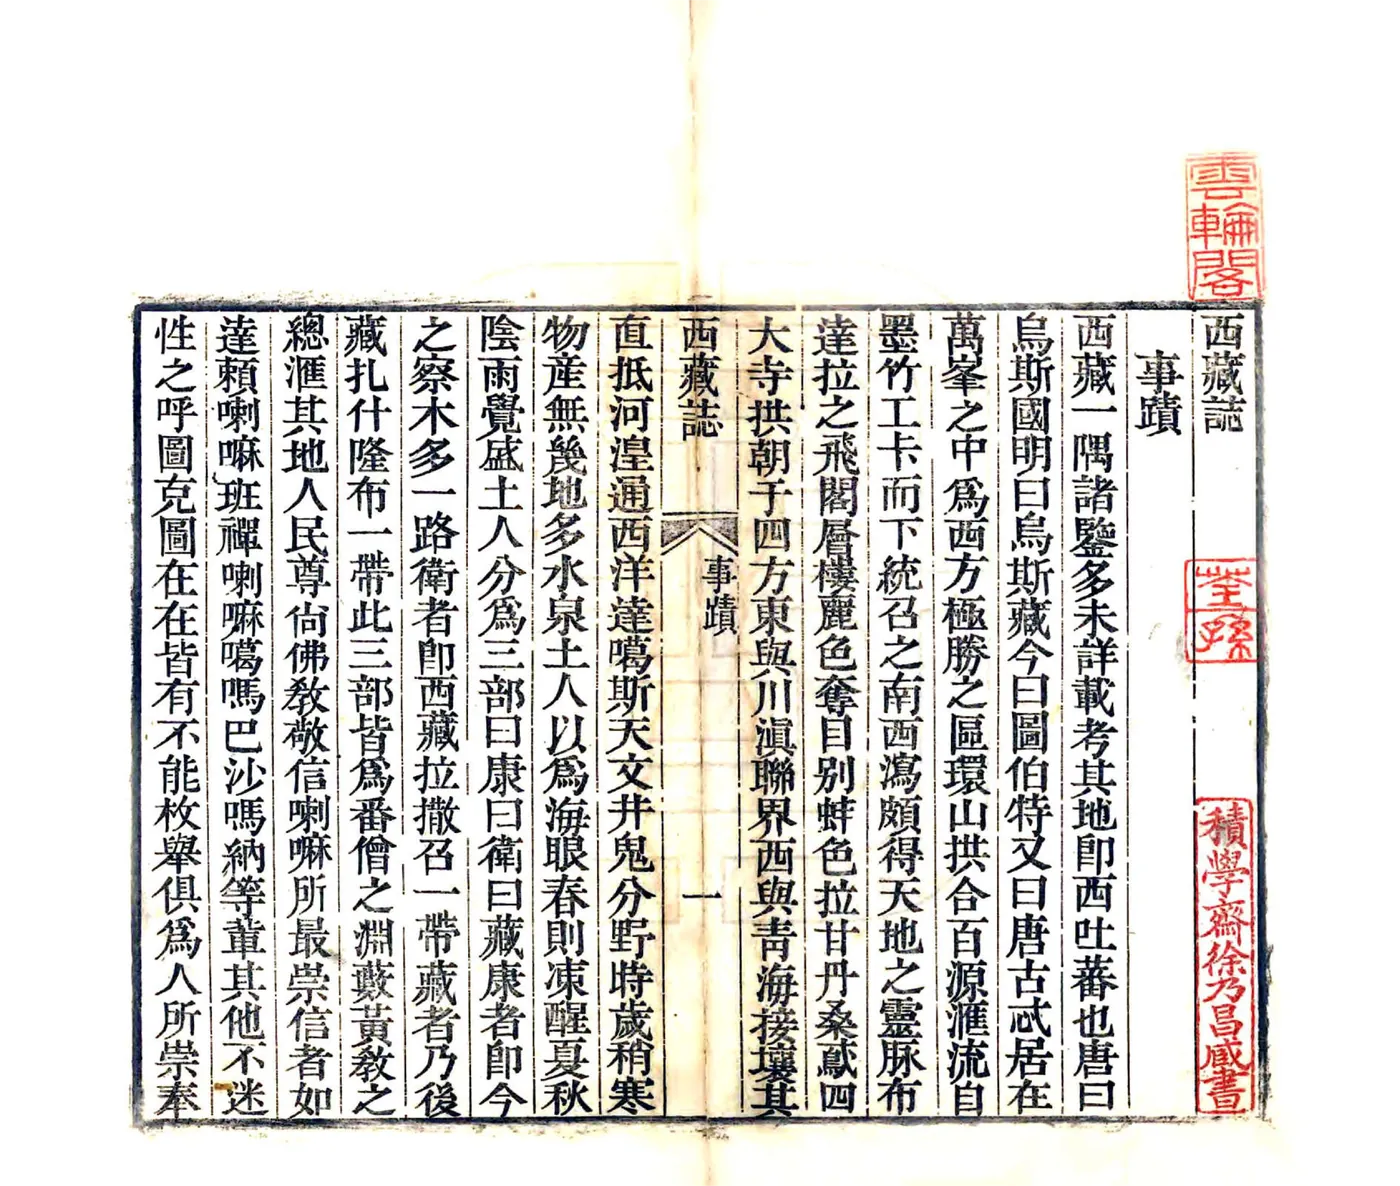 西藏誌
事蹟
西藏一隅諸鑒多未詳載考其地卽西吐蕃也唐曰
烏斯國明曰烏斯藏今曰圖伯特又曰唐古忒居在
萬峯之中爲西方極勝之區環山拱合百源滙流自
墨竹工卡而下統召之南西瀉頗得天地之靈脉布
達拉之飛閣層樓麗色奪目别蚌色拉甘丹桑鳶四
大寺拱朝于四方東與川滇聯界西與青海接壤其
西藏誌
事蹟
一
直抵河湟通西洋達噶斯天文井鬼分野時歲稍寒
物產無幾地多水泉土人以爲海眼春則凍醒夏秋
陰雨覺盛土人分爲三部曰康曰衛曰藏康者卽今
之察木多一路衛者卽西藏拉撒召一帶藏者乃後
藏扎什隆布一帶此三部皆爲番僧之淵藪黃敎之
總滙其地人民尊尙佛敎敬信喇嘛所最崇信者如
達賴喇嘛班禪喇嘛噶嗎巴沙嗎納等輩其他不迷
性之呼圖克圖在在皆有不能枚舉俱爲人所崇奉
雲輪閣
荃孫
積學齋徐乃昌藏書